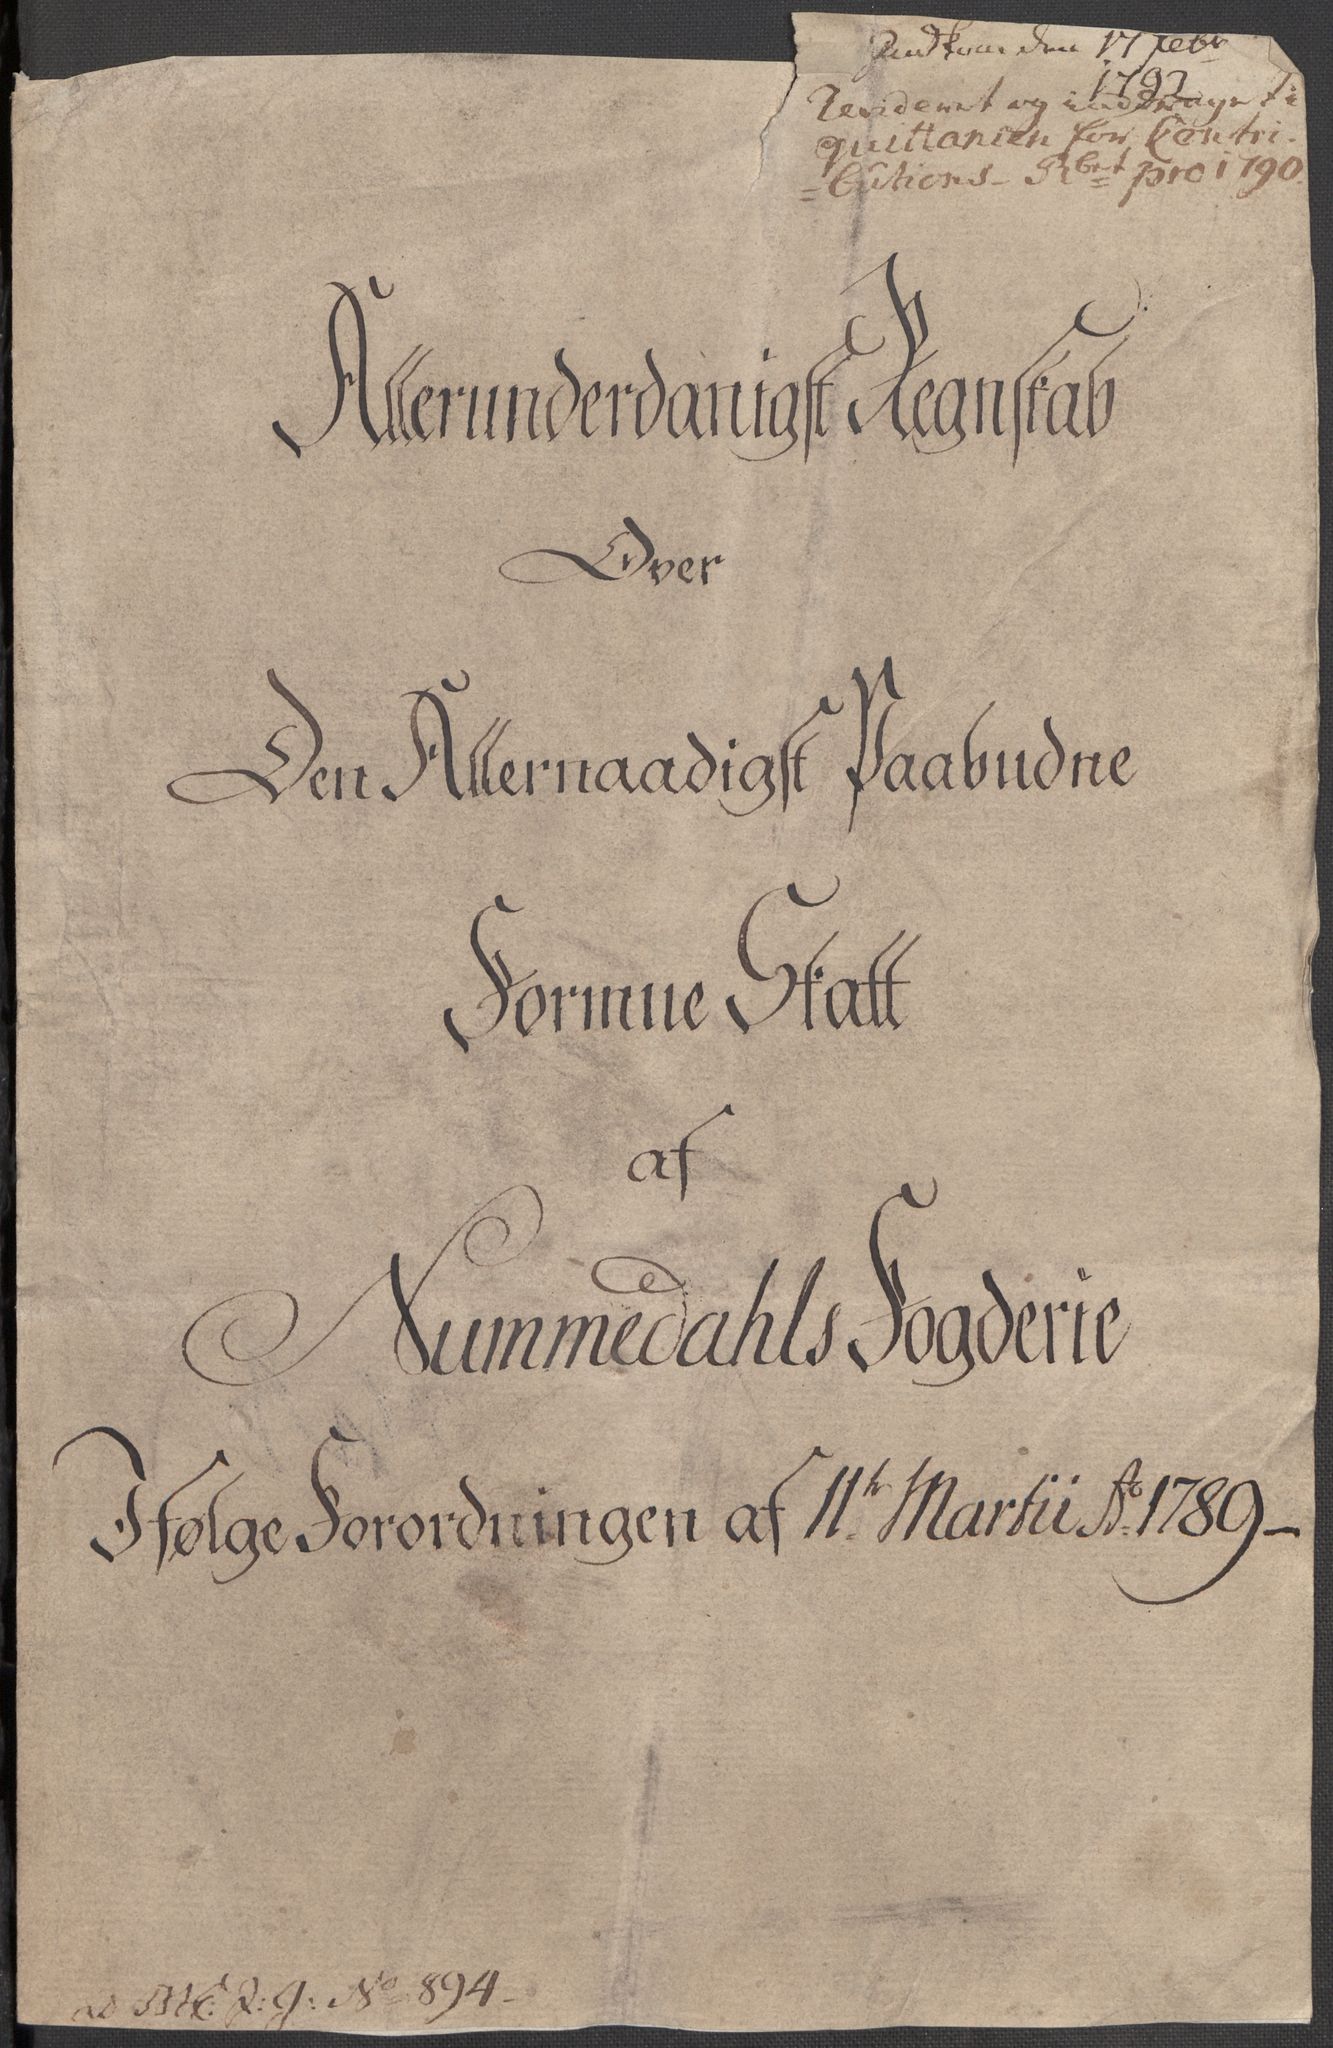 Indkom den 17 Febr
1792
Revideret og inddraget i
quittancen for Contri-
=butions- Rbst pro 1790.
Allerunderdanigst Regnskab
Over
Den Allernaadigst Paabudne
Formue Skatt
af
Nummedahls Fogderie
Ifølge Forordningen af 11te Martii Ao 1789
No 894